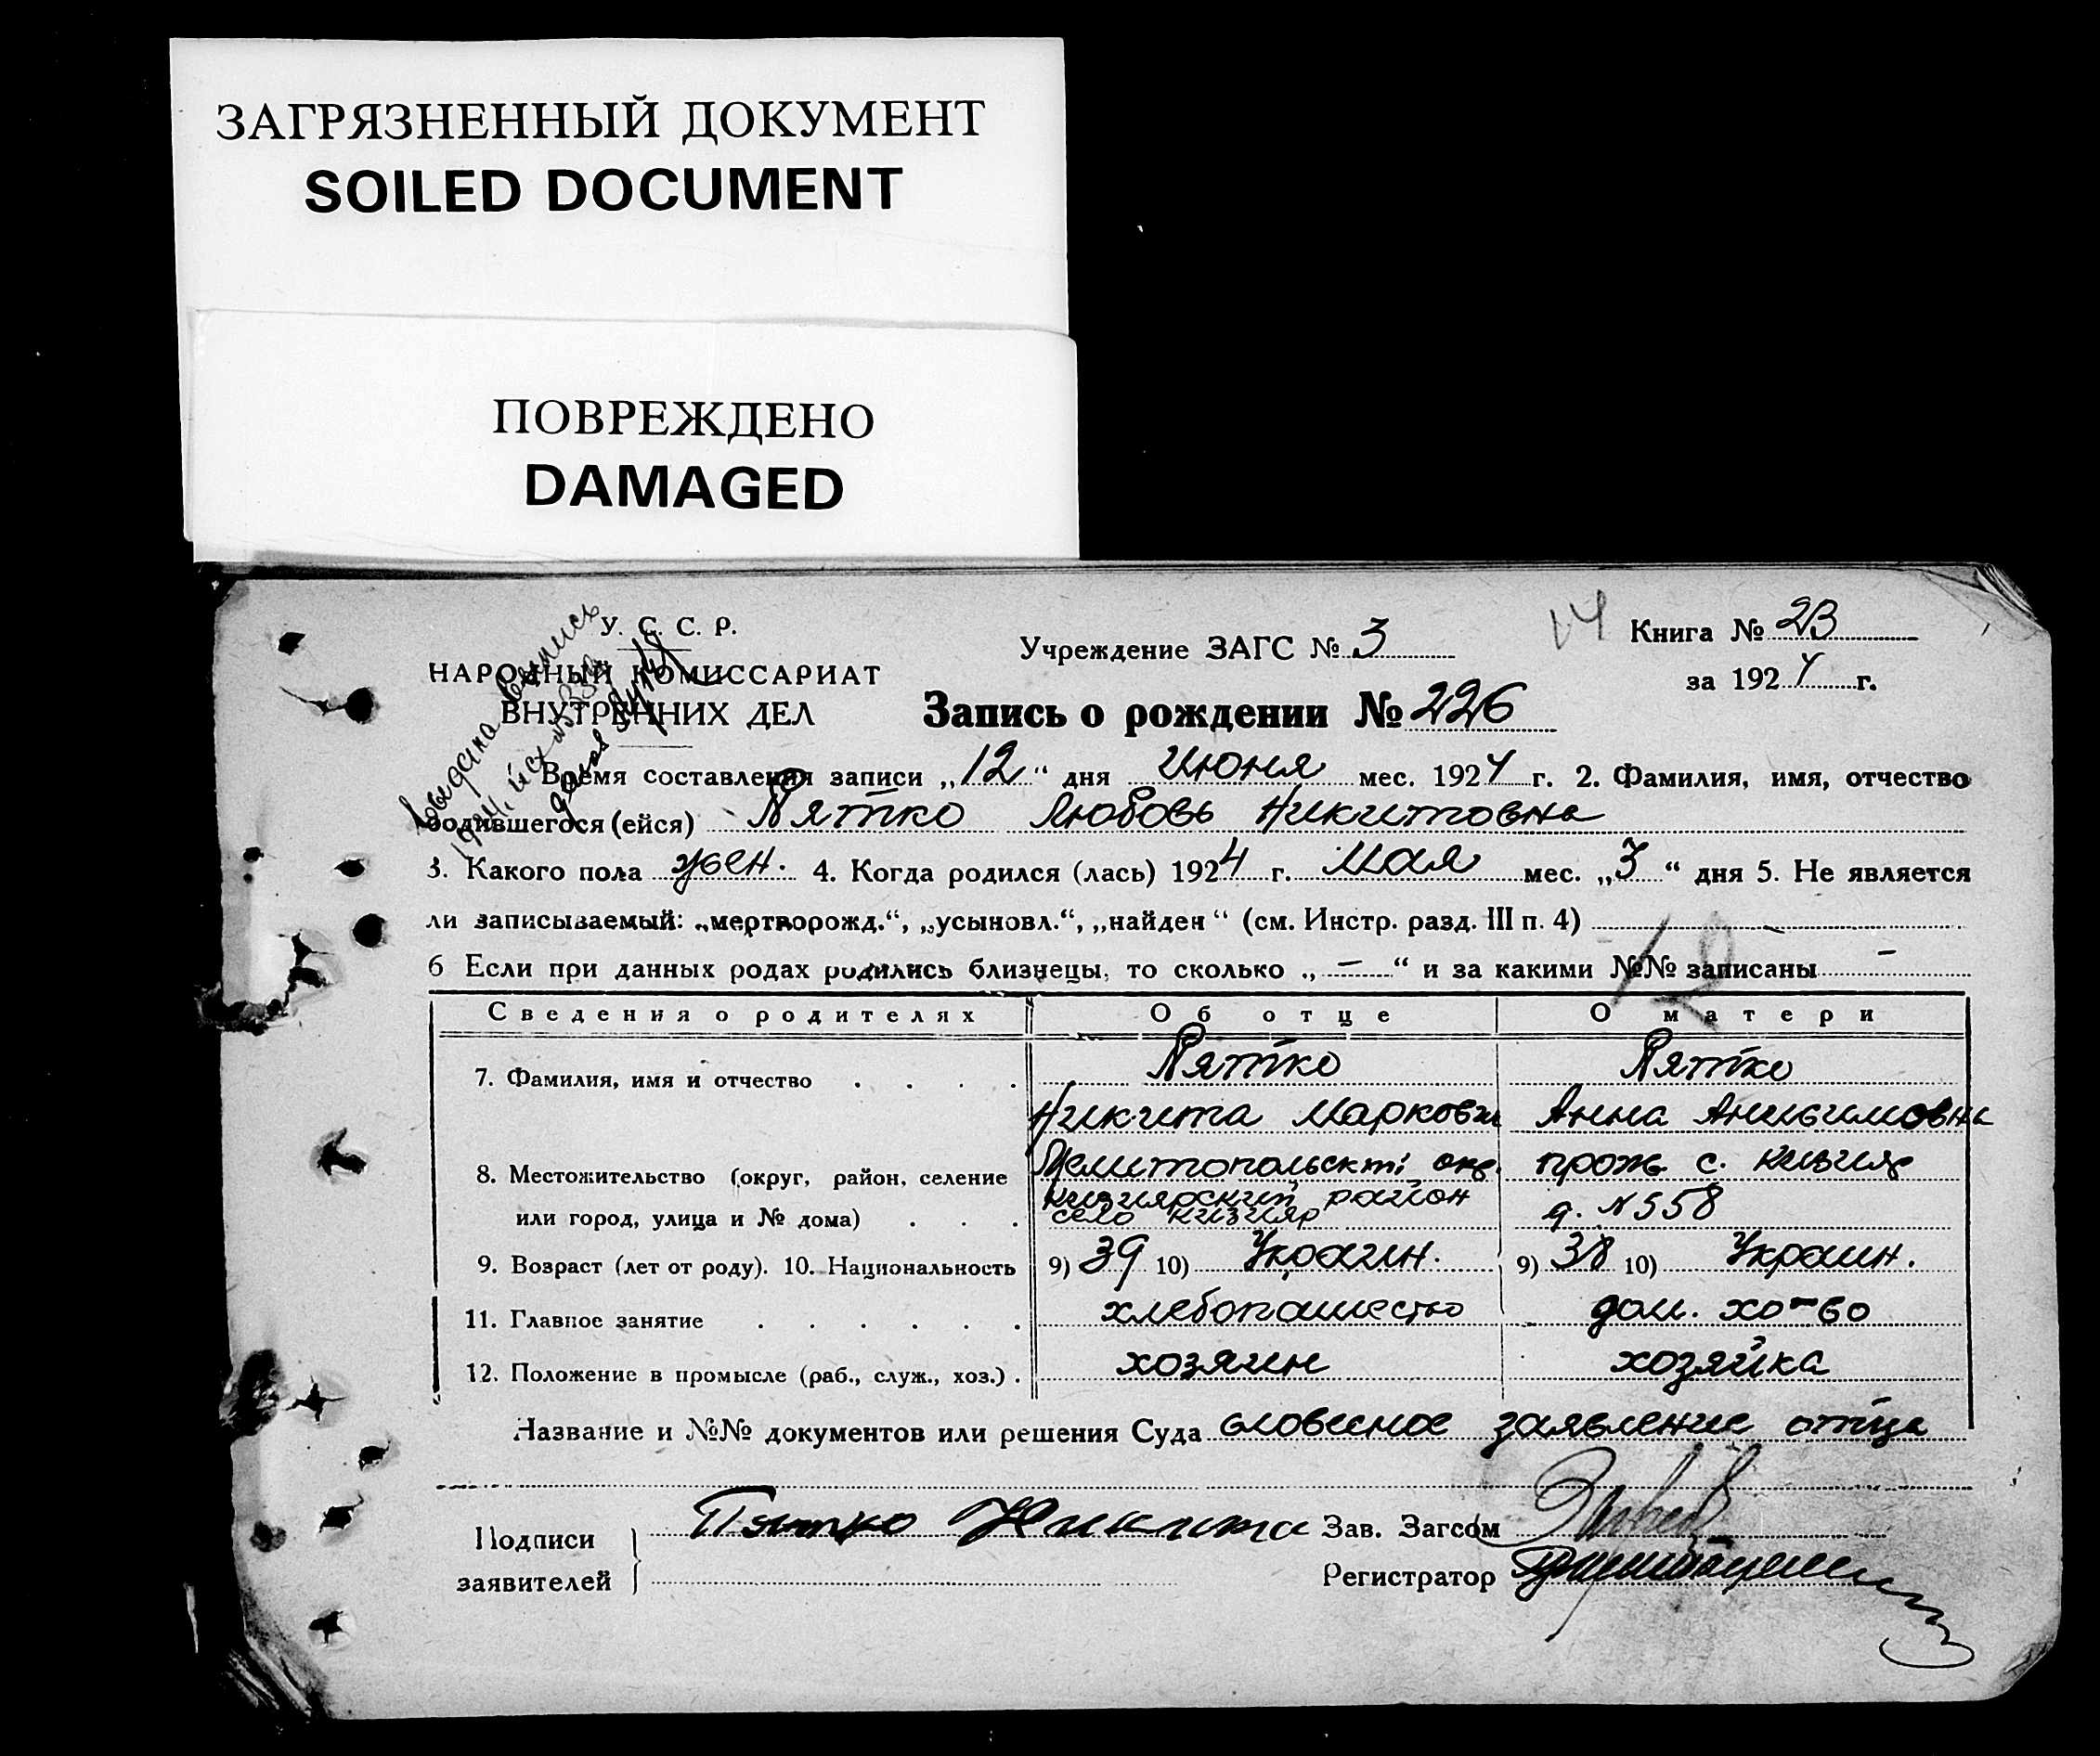 ЗАГРЯЗНЕННЫЙ ДОКУМЕНТ
SOILED DOCUMENT
ПОВРЕЖДЕНО
DAMAGED
У. С. С. Р.
НАРОДНЫЙ КОМИССАРИАТ
ВНУТРЕННИХ ДЕЛ
Учреждение ЗАГС № 3
14
Книга № 23
за 1924 г.
Запись о рождении № 226
Время составления записи „12" дня Июня мес. 1924 г. 2. Фамилия, имя, отчество
родившегося (ейся) Пятко Любовь Никитовна
3. Какого пола жен. 4. Когда родился (лась) 1924 г. мая мес. „3" дня 5. Не является
ли записываемый: „мертворожд.", „усыновл.", „найден" (см. Инстр. разд. III п. 4) -
6 Если при данных родах родились близнецы, то сколько „ — " и за какими №№ записаны -
Сведения о родителях Об отце О матери
7. Фамилия, имя и отчество . . . . Пятко Пятко
Никита Маркови Анна Анисимовна
8. Местожительство (округ, район, селение Мелитопольскті окр. прож. с. Кизияр
или город, улица и № дома) . . . Кизиярский район село Кизияр д. №558
9. Возраст (лет от роду). 10. Национальность 9) 39 10) Украин. 9) 38 10) Украин.
11. Главное занятие . . . . . . хлебопашество дом. хо-во
12. Положение в промысле (раб., служ., хоз.) . хозяин хозяйка
Название и №№ документов или решения Суда словесное заявление отца
Подписи Пятко Никита Зав. Загсом
заявителей Регистратор